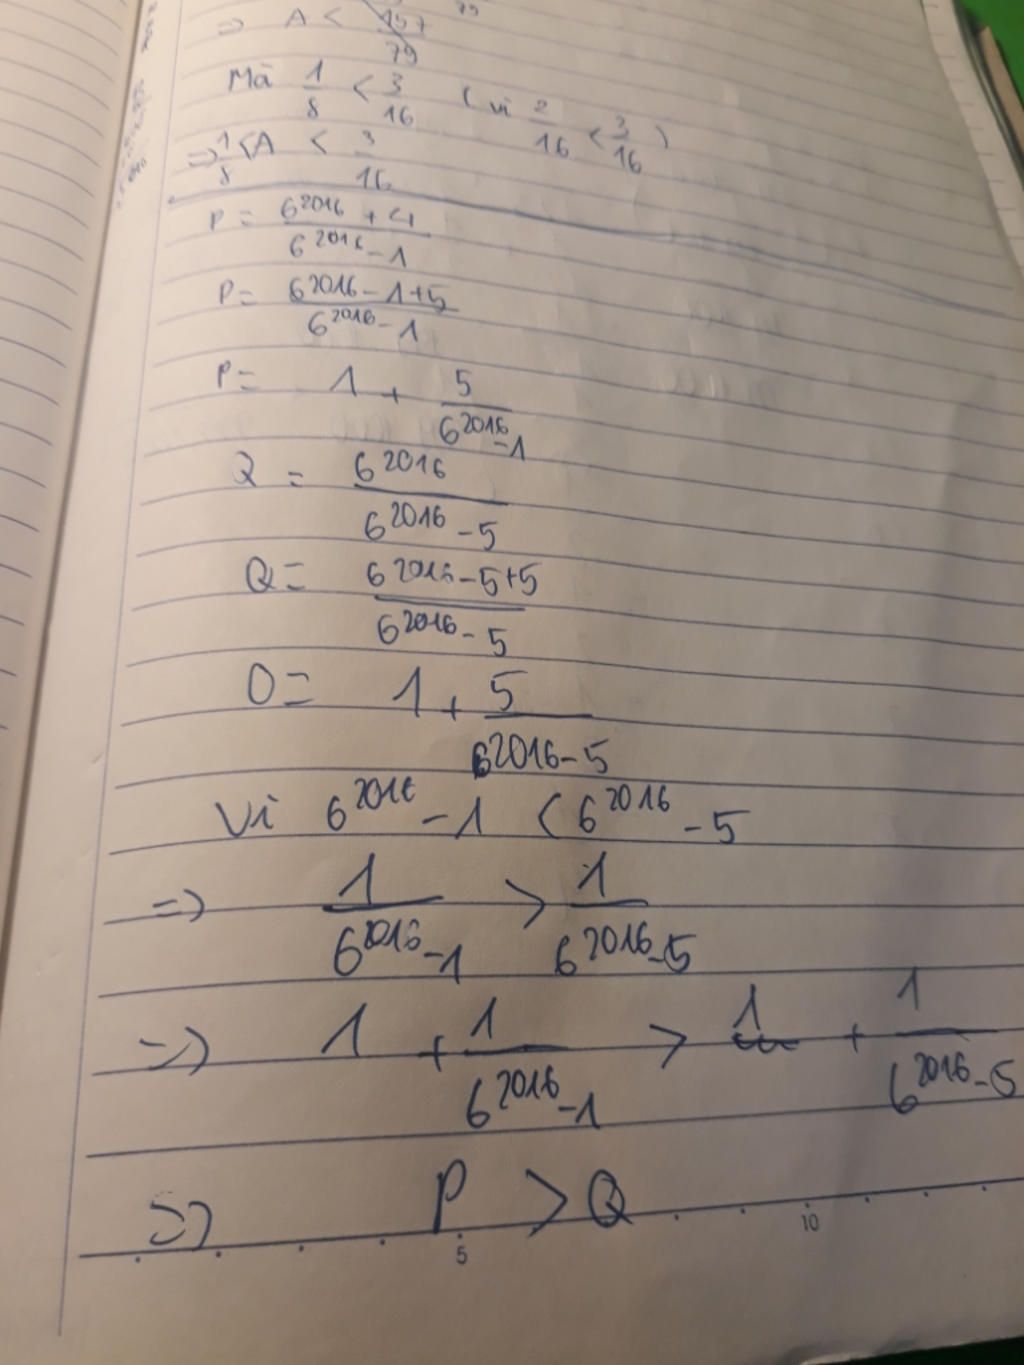 79
=> A < 157/79
Mà 1/8 < 3/16 ( vì 2/16 < 3/16 )
=> 1/8 < A < 3/16
P = (6^2016 + 4)/(6^2016 - 1)
P = (6^2016 - 1 + 5)/(6^2016 - 1)
P = 1 + 5/(6^2016 - 1)
Q = 6^2016/(6^2016 - 5)
Q = (6^2016 - 5 + 5)/(6^2016 - 5)
Q = 1 + 5/(6^2016 - 5)
Vì 6^2016 - 1 < 6^2016 - 5
=> 1/(6^2016 - 1) > 1/(6^2016 - 5)
=> 1 + 1/(6^2016 - 1) > 1 + 1/(6^2016 - 5)
=> P > Q
5 10